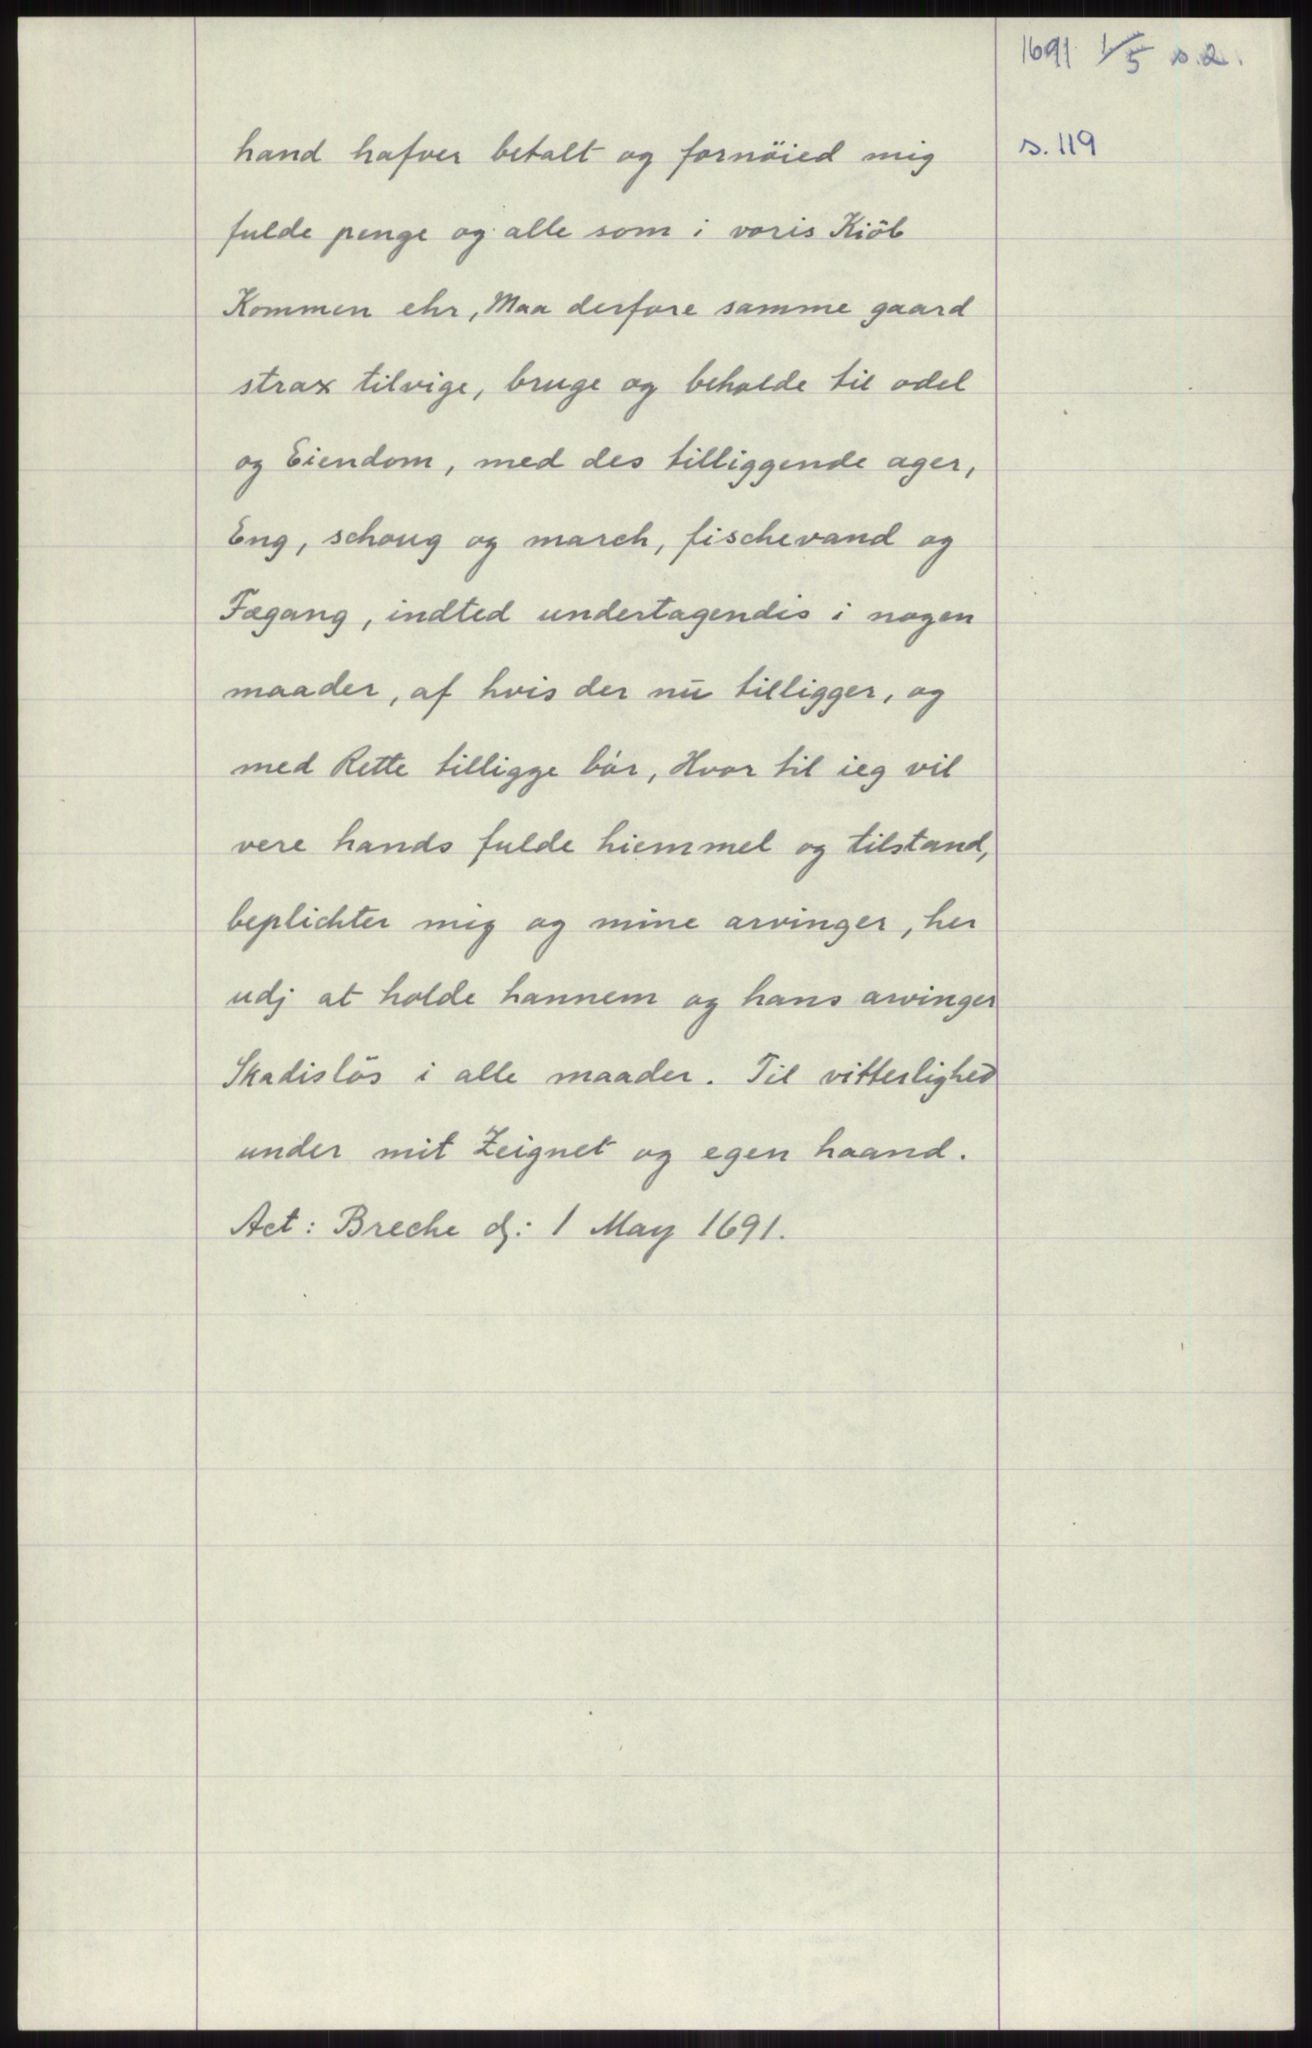 1691 1/5 s.2.
s. 119
hand hafver betalt og fornöied mig
fulde penge og alle som i voris Kiöb
Kommen ehr, Maa derfore samme gaard
strax tilvige, bruge og beholde til odel
og Eiendom, med des tilliggende ager,
Eng, schoug og march, fischevand og
Fægang, indted undertagendis i nogen
maader, af hvis der nu tilligger, og
med Rette tilligge bör, Hvor til ieg vil
vere hands fulde hiemmel og tilstand,
beplichter mig og mine arvinger, her
udj at holde hannem og hans arvinger
Skadislös i alle maader. Til vitterlighed
under mit Zeignet og egen haand.
Act: Breche dj: 1 May 1691.